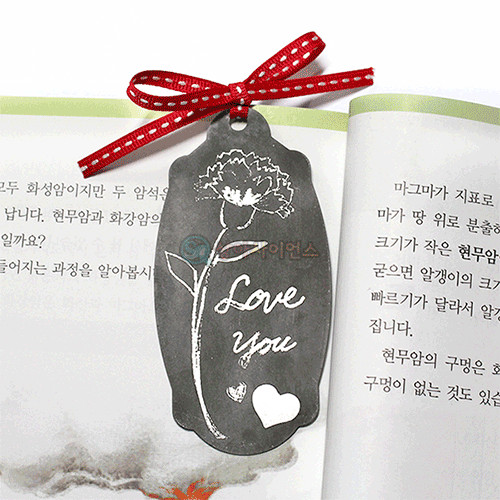 모두 화성암이지만 두 암석은
납니다. 현무암과 화강암의
일까요?
들어지는 과정을 알아봅시
Love
You
마그마가 지표로
마가 땅 위로 분출해
크기가 작은 현무암
굳으면 알갱이의 크기
빠르기가 달라서 알갱
집니다.
현무암의 구멍은 화
구멍이 없는 것도 있습